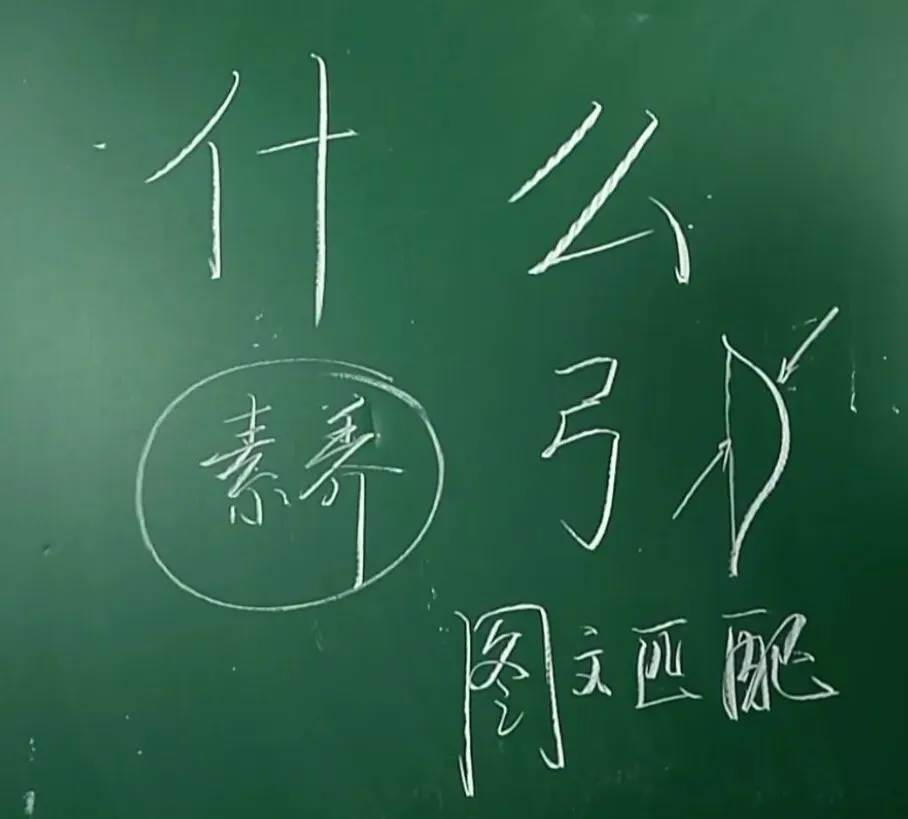 什么
素养 弓
图文匹配